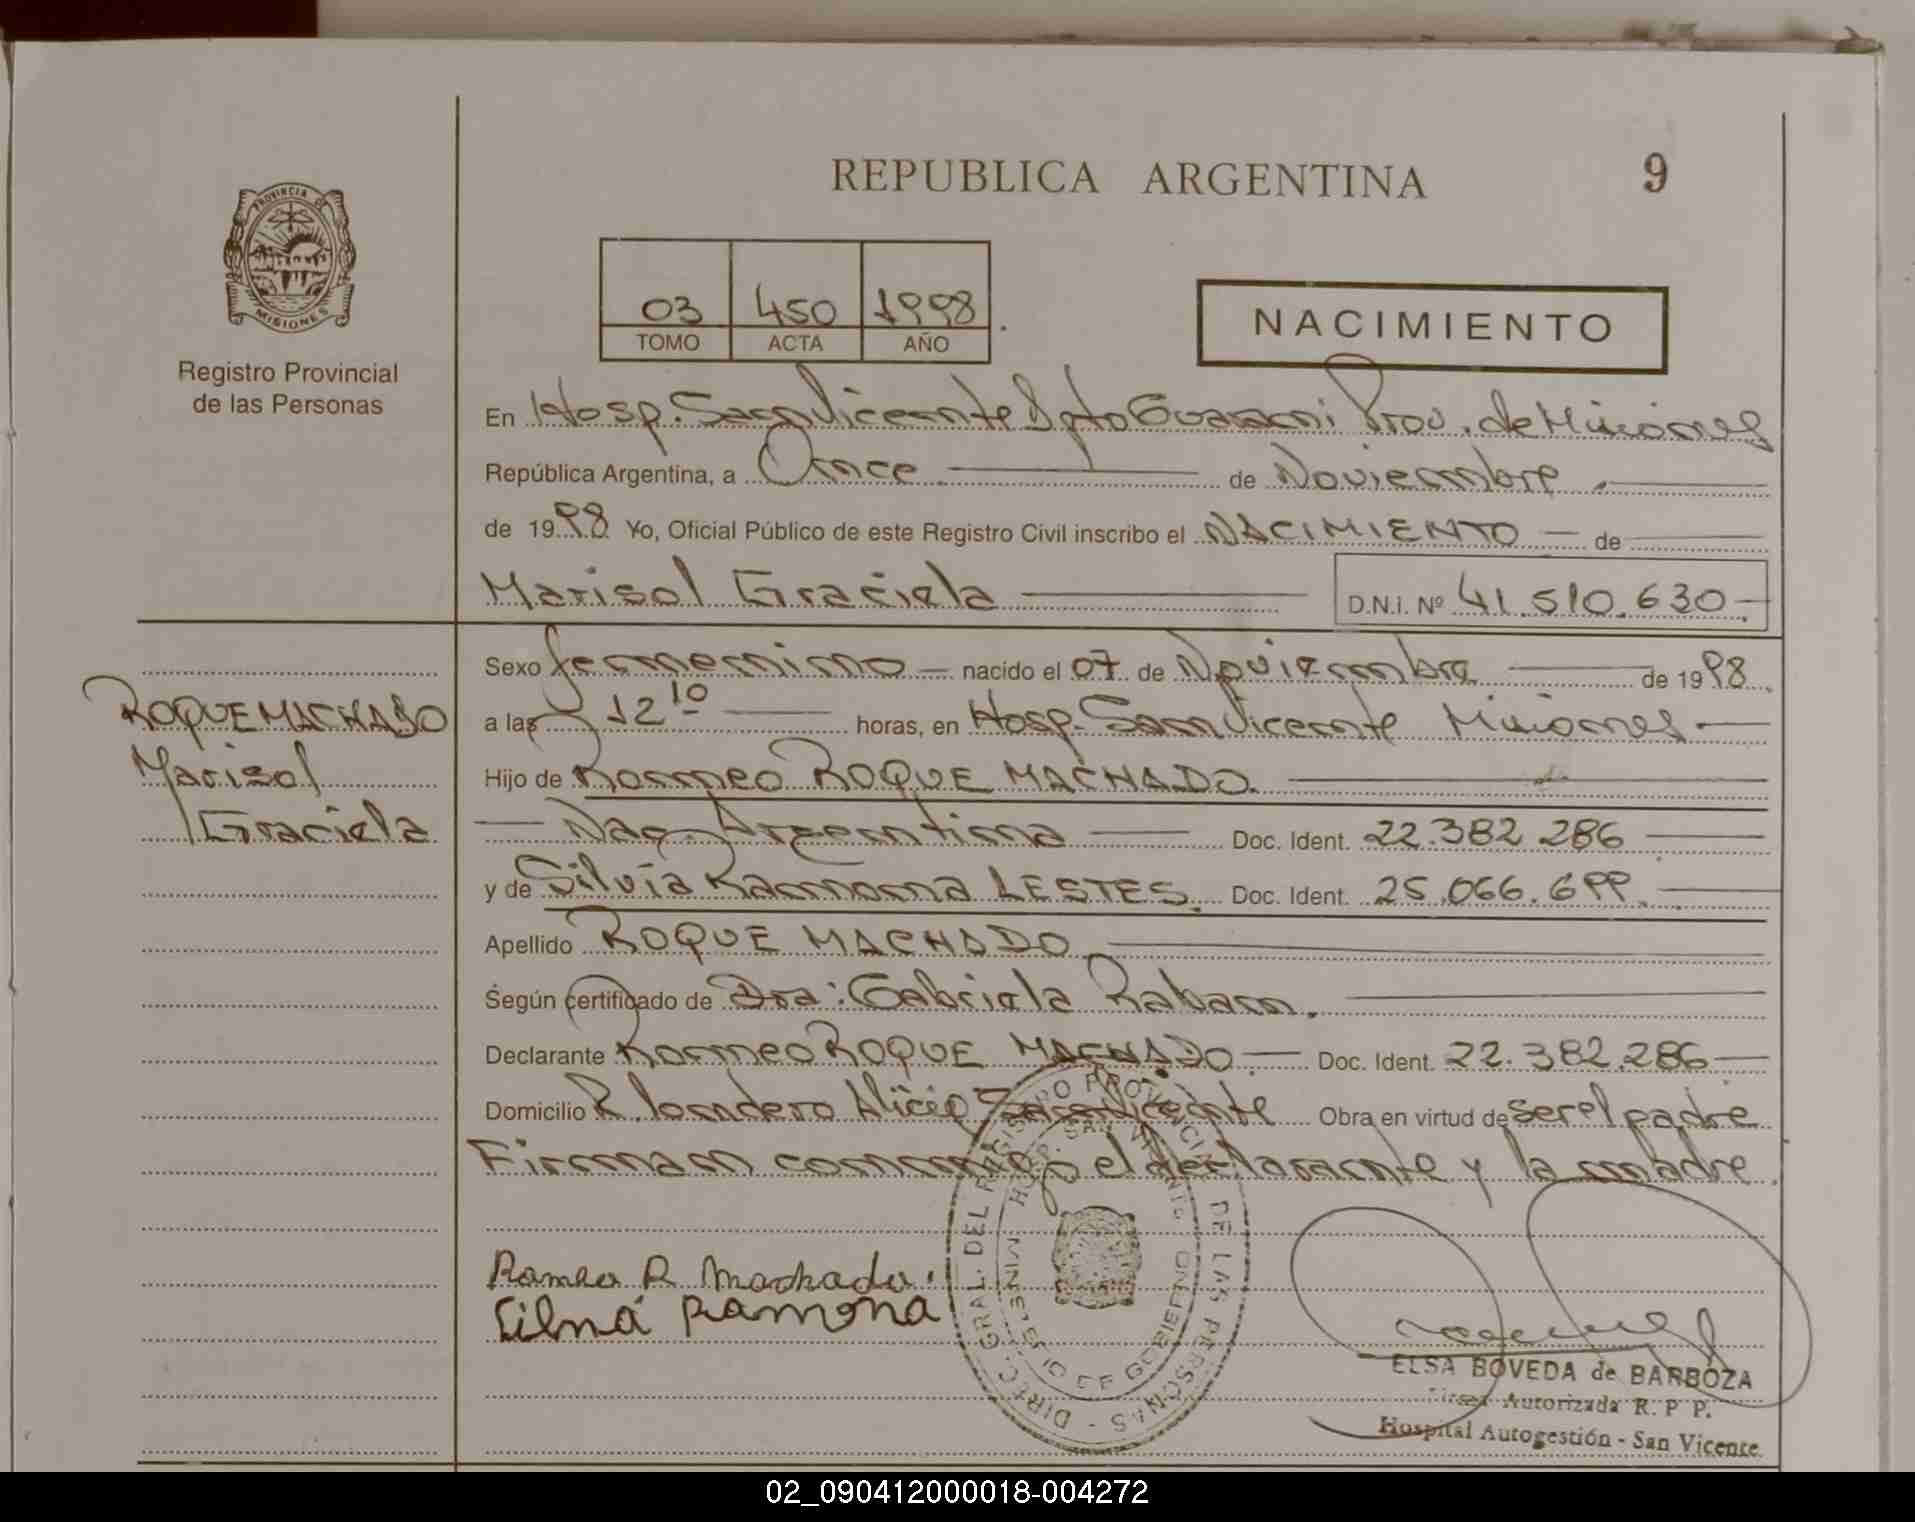 REPUBLICA ARGENTINA
9
PROVINCIA DE
MISIONES
Registro Provincial
de las Personas
03 450 1998
TOMO ACTA AÑO
NACIMIENTO
En Hosp. San Vicente Dpto Guarani Prov. de Misiones
República Argentina, a Once de Noviembre
de 1998 Yo, Oficial Público de este Registro Civil inscribo el NACIMIENTO de
Marisol Graciela D.N.I. Nº 41.510.630
Sexo femenino nacido el 07 de Noviembre de 1998
a las 12 10 horas, en Hosp. San Vicente Misiones
Hijo de Romeo ROQUE MACHADO.
Nac. Argentina Doc. Ident. 22.382.286
y de Silvia Ramona LESTES. Doc. Ident. 25.066.699.
Apellido ROQUE MACHADO
Según certificado de Dra: Gabriela Raban.
Declarante Romeo ROQUE MACHADO Doc. Ident. 22.382.286
Domicilio B. Londero San Vicente Obra en virtud de ser el padre
Firman conmigo el declarante y la madre.
ROQUE MACHADO
Marisol
Graciela
Romeo R Machado.
Ramona
DIREC. GRAL. DEL REGISTRO PROVINCIAL DE LAS PERSONAS
HOSP. SAN VICENTE
MINISTERIO DE GOBIERNO
ELSA BOVEDA de BARBOZA
Autorizada R. P. P.
Hospital Autogestión - San Vicente
02_090412000018-004272